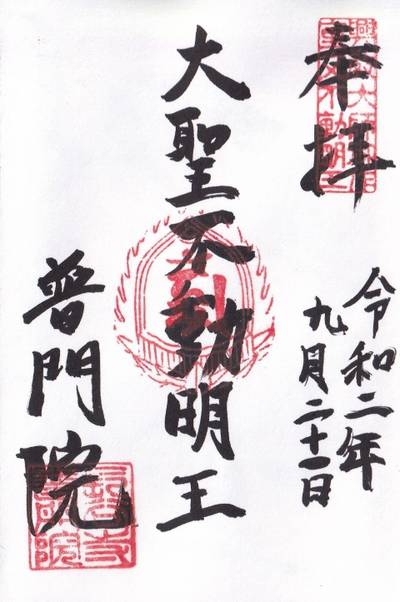 奉拝
令和二年
九月二十一日
大聖不動明王
普門院